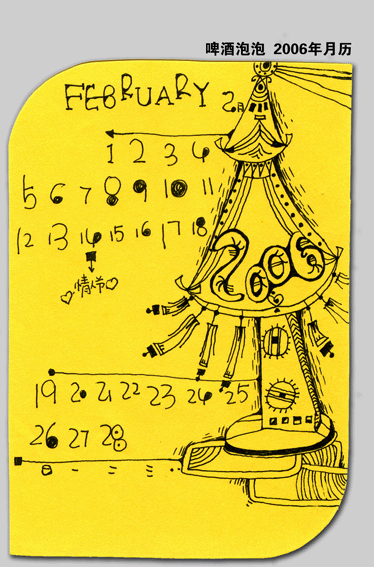 啤酒泡泡 2006年月历
FEBRUARY 2月
1 2 3 4
5 6 7 8 9 10 11
12 13 14 15 16 17 18
2006
♡情人节♡
19 20 21 22 23 24 25
26 27 28
日 一 二 三